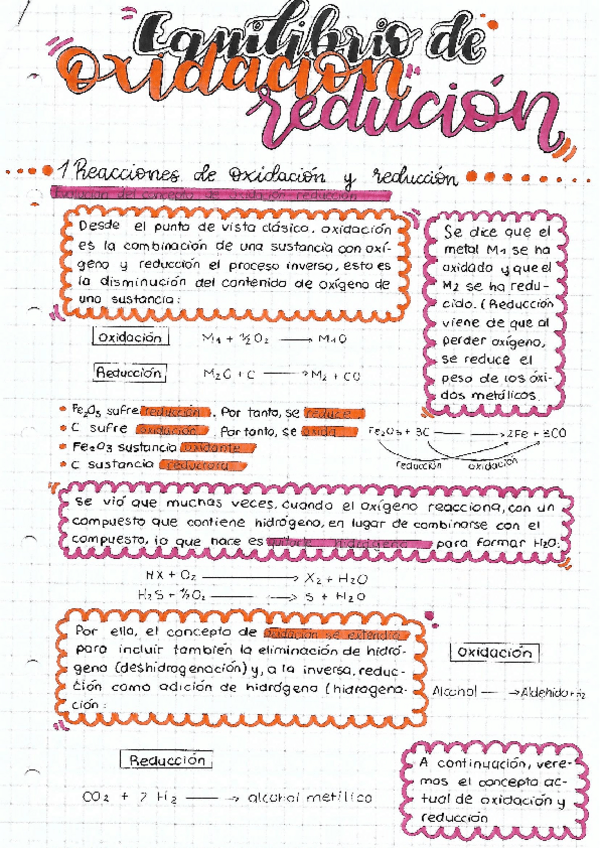 Equilibrio de
oxidación
redución
1 Reacciones de oxidación y reducción
Evolución del concepto de oxidación reducción
Desde el punto de vista clásico, oxidación
es la combinación de una sustancia con oxí-
geno y reducción el proceso inverso, esto es
la disminución del contenido de oxígeno de
una sustancia:
Se dice que el
metal M1 se ha
oxidado y que el
M2 se ha redu-
cido. (Reducción
viene de que al
perder oxígeno,
se reduce el
peso de los óxi-
dos metálicos.
Oxidación M1 + ½O2 → M1O
Reducción M2O + C → M2 + CO
• Fe2O3 sufre reducción. Por tanto, se reduce
• C sufre oxidación. Por tanto, se oxida
• Fe2O3 sustancia oxidante
• C sustancia reductora
Fe2O3 + 3C → 2Fe + 3CO
reducción oxidación
Se vió que muchas veces, cuando el oxígeno reacciona, con un
compuesto que contiene hidrógeno, en lugar de combinarse con el
compuesto, lo que hace es quitarle hidrógeno para formar H2O:
HX + O2 → X2 + H2O
H2S + ½O2 → S + H2O
Por ello, el concepto de oxidación se extendió
para incluir también la eliminación de hidró-
geno (deshidrogenación) y, a la inversa, reduc-
ción como adición de hidrógeno (hidrogena-
ción:
Oxidación
Alcohol → Aldehído + H2
Reducción
CO2 + 2 H2 → alcohol metílico
A continuación, vere-
mos el concepto ac-
tual de oxidación y
reducción